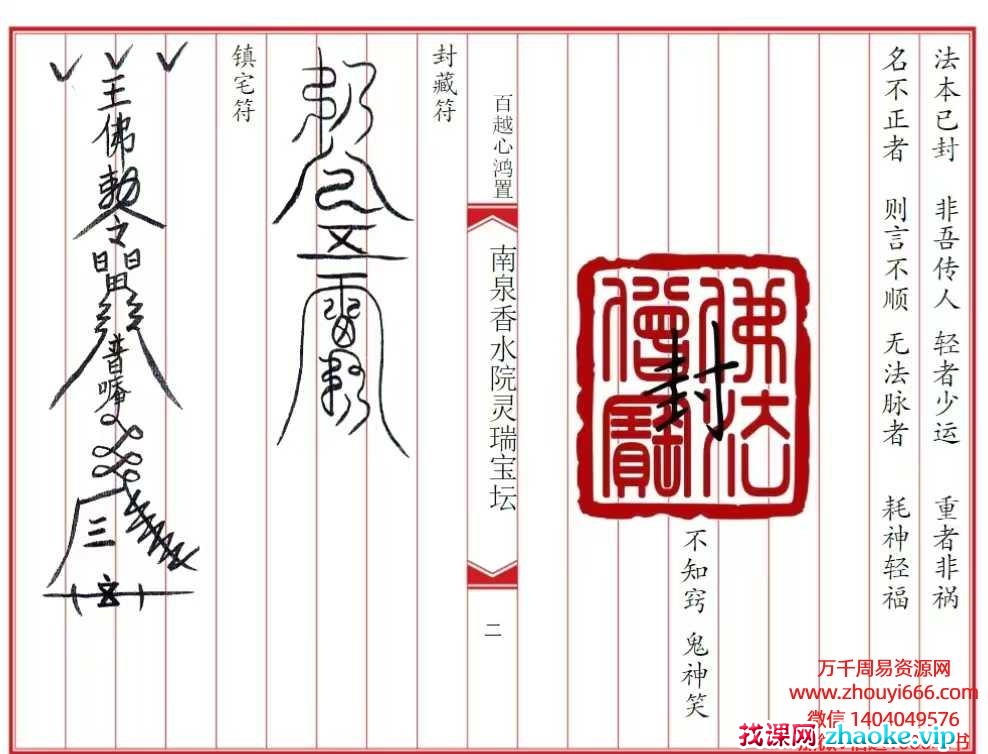 法本已封 非吾传人 轻者少运 重者非祸
名不正者 则言不顺 无法脉者 耗神轻福
佛法
僧寳
封
不知窍 鬼神笑
百越心鸿置
南泉香水院灵瑞宝坛
二
封藏符
镇宅符
王佛勅令
普唵
三
万千周易资源网
www.zhouyi666.com
微信 1404049576
找课网zhaoke.vip